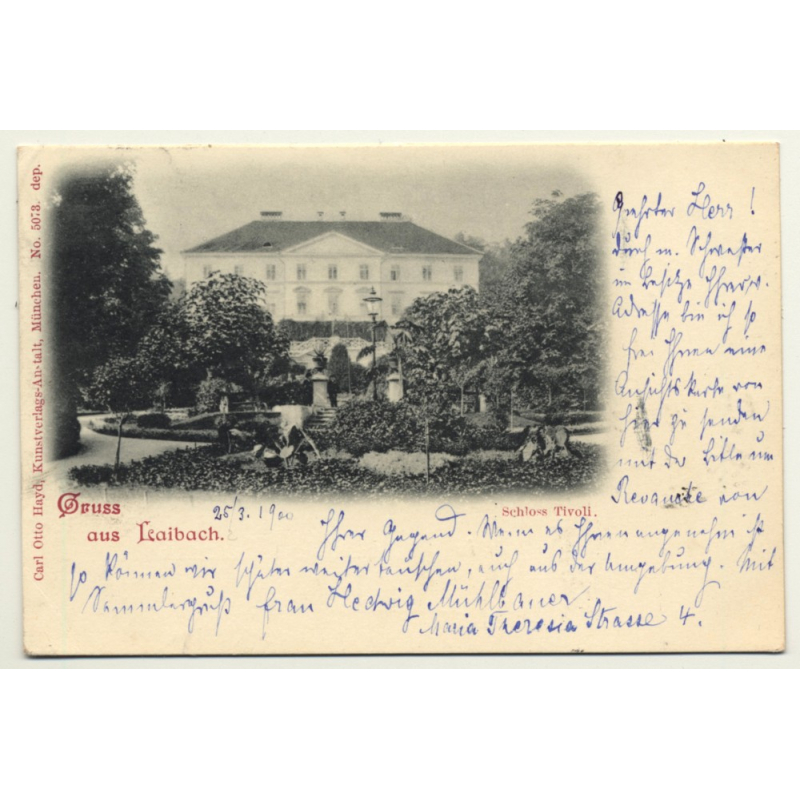 Carl Otto Hayd, Kunstverlags-Anstalt, München. No. 5073. dep.
Geehrter Herr!
durch m. Schwester
im Besitze Ihrer w.
Adresse bin ich so
frei Ihnen eine
Ansichtskarte von
hier zu senden
mit der Bitte um
Revanche von
Schloss Tivoli.
Gruss
aus Laibach.
25/3. 1900
Ihrer Gegend. Wenn es Ihnen angenehm ist
so können wir später weitertauschen, auch aus der Umgebung. Mit
Sammlergruß Frau Hedwig Mühlbauer
Maria Theresia Strasse 4.